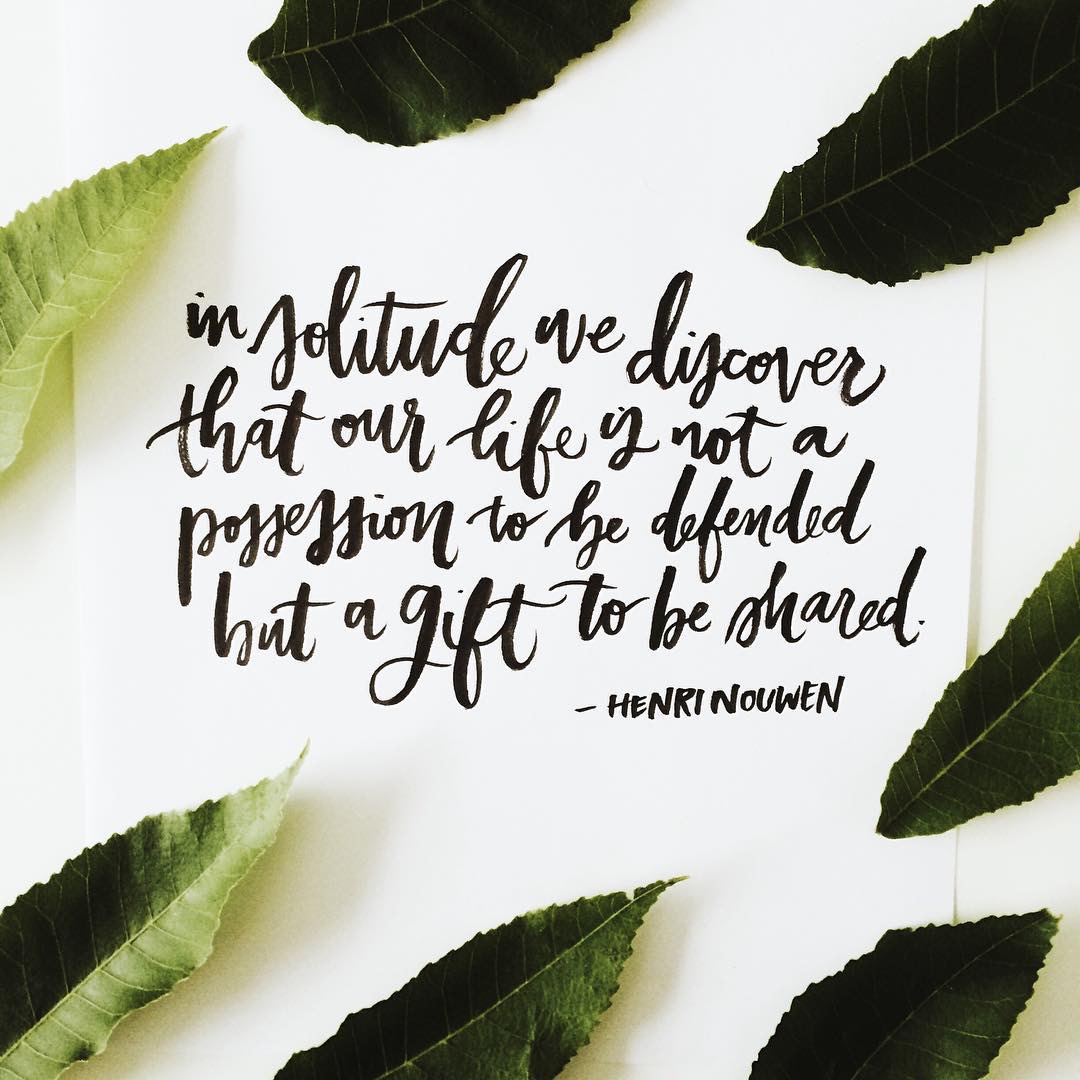 in solitude we discover
that our life is not a
possession to be defended
but a gift to be shared.
- HENRI NOUWEN